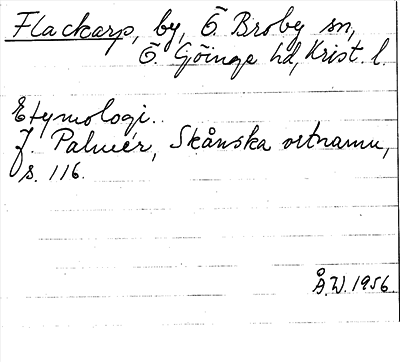 Flackarp, by, Ö. Broby sn,
Ö. Göinge hd, Krist. l.
Etymologi.
J. Palmér, Skånska ortnamn,
s. 116.
Å.W. 1956.